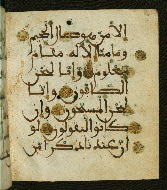 إلا من هو صال الجحيم
وما منا إلا له مقام
معلوم وإنا لنحن
الصافون وإنا
لنحن المسبحون وإن
كانوا ليقولون لو
أن عندنا ذكرا من